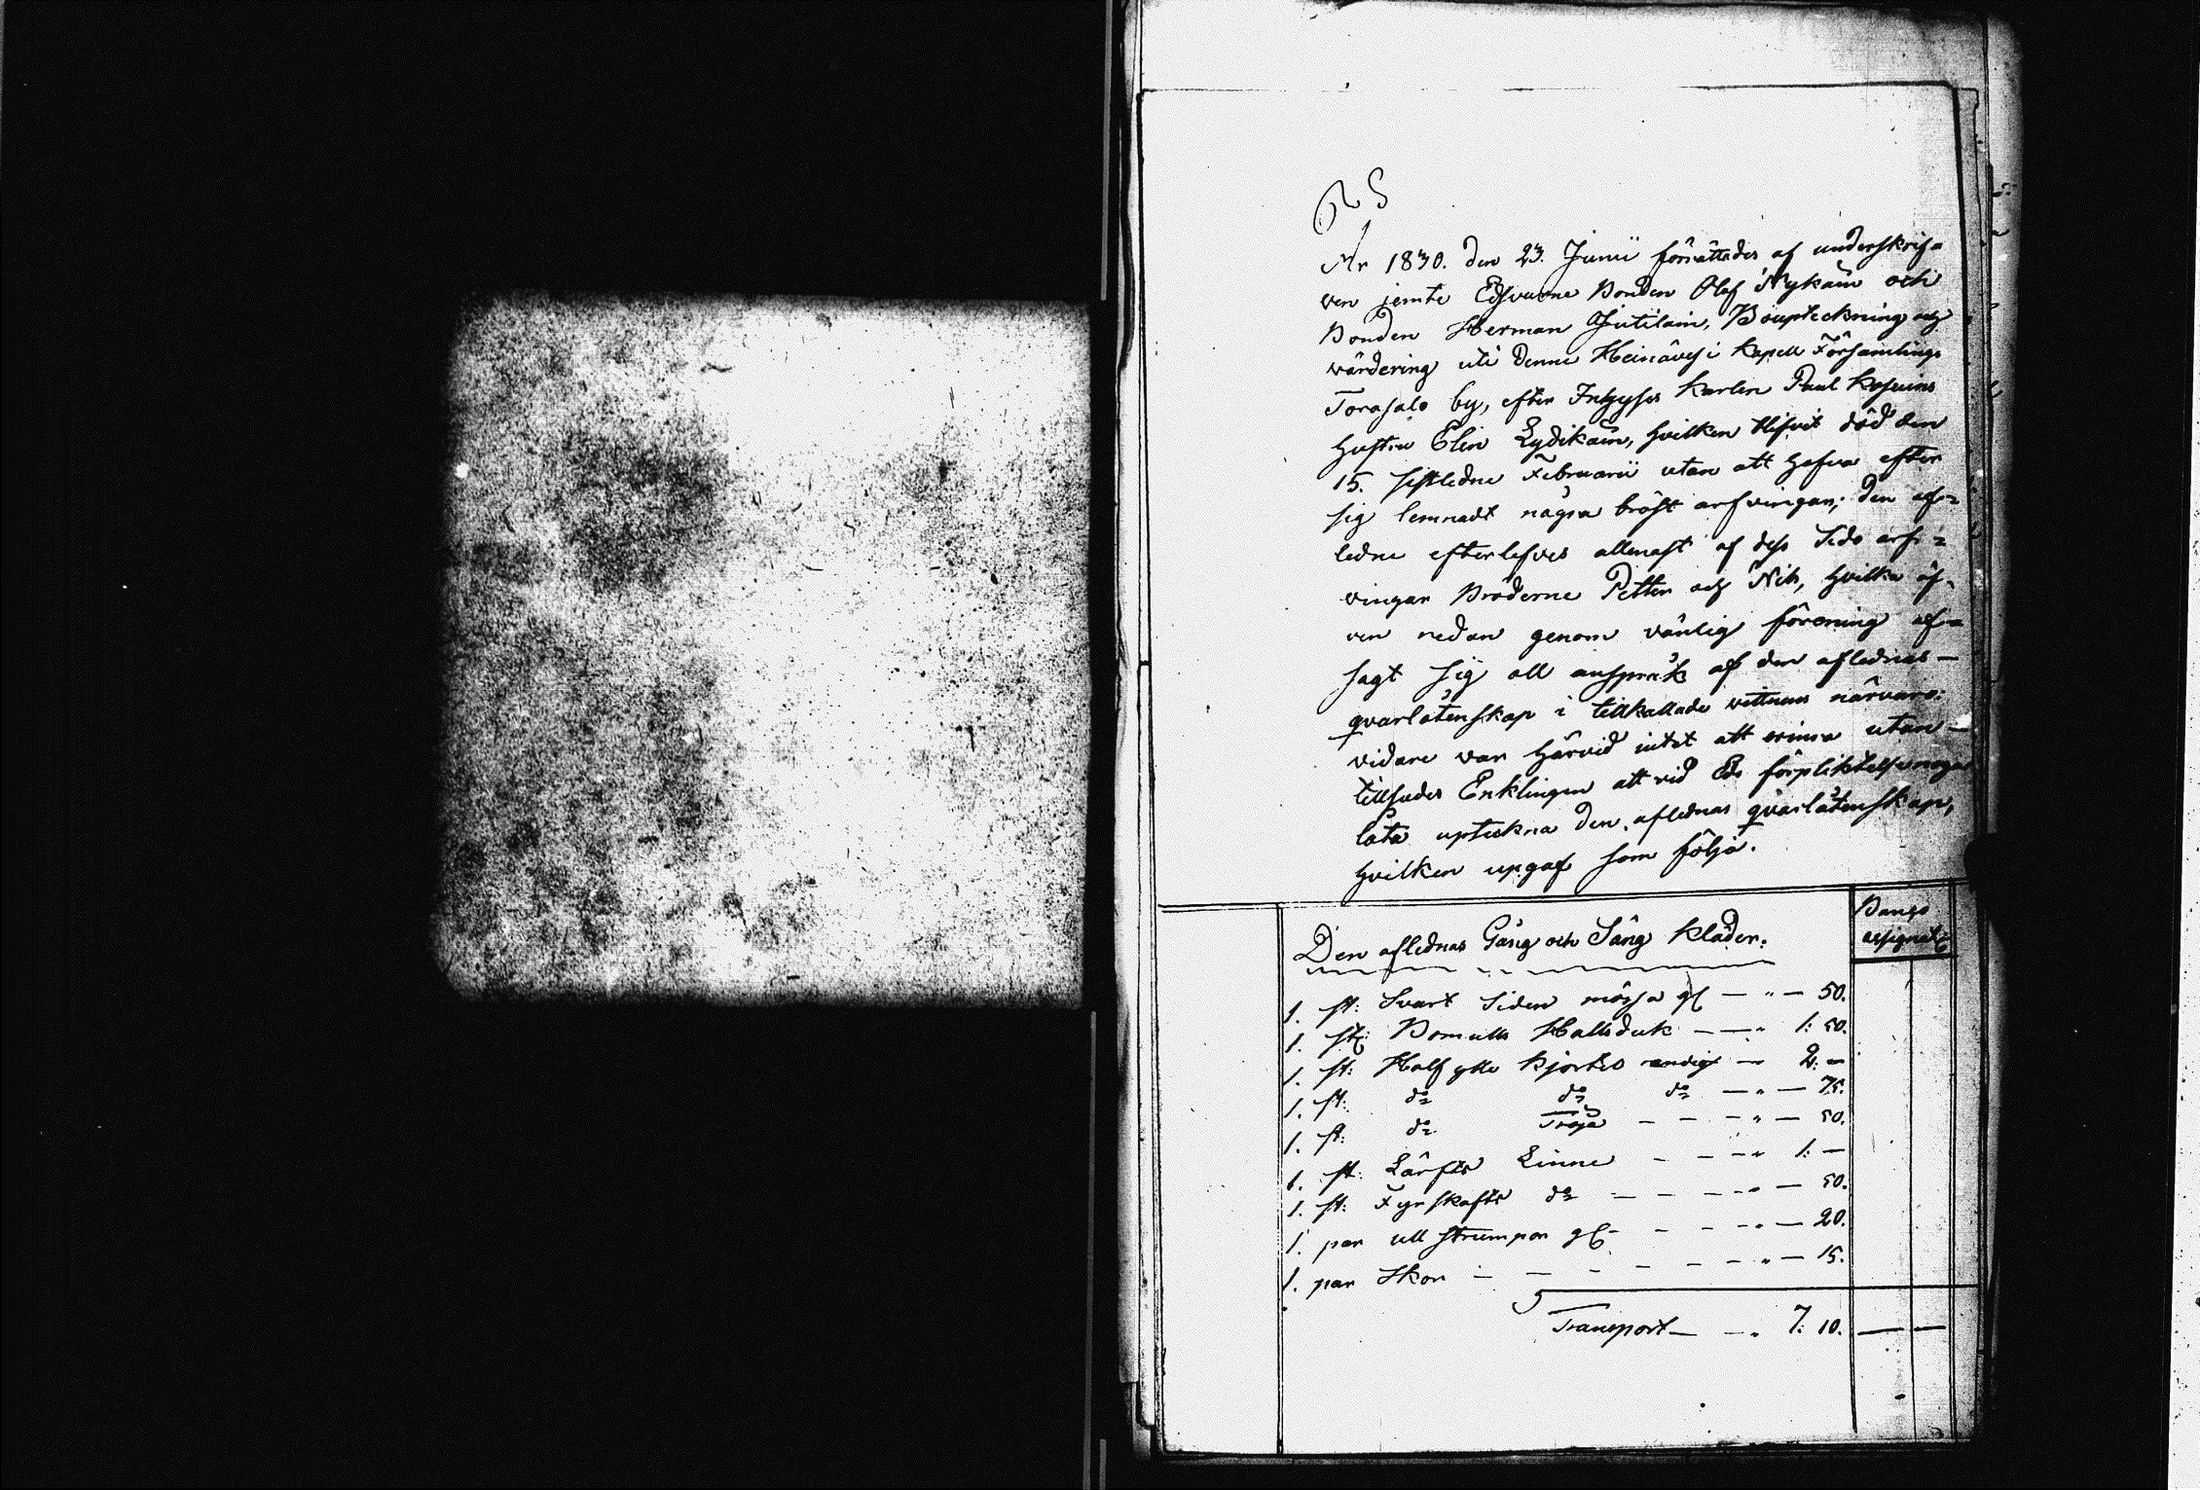 År 1830. den 23. Junii förrättades af underskrif-
ven jemte Edsvurne Bonden Olof Nykäin och
Bonden Herman Jutilain, Bouptekning och
värdering uti denne Heinävesi Kapell Församlings
Torasalo by, efter Inhyses Karlen Paul Kosuins
hustru Elin Lydikäin, hvilken blifvit död den
15. sistledne Februarii utan att hafva efter
sig lemnadt några bröst arfvingar; den af-
ledne efterlefves allenast af dess Sido arf-
vingar Bröderne Petter och Nils, hvilka äf-
ven nedan genom vänlig förening af-
sagt sig all anspråk af den aflednas
qvarlåtenskap i tillkallade vittnens närvaro:
vidare var härvid intet att erinra utan
tillsades Enklingen att vid Eds förpliktelse noga
låta upteckna den aflednas qvarlåtenskap,
hvilken upgaf som följa.
Den aflednas Gång och Säng kläder.
Banco
assignat:
1. st: Svart Siden mössa gl — " — 50.
1. st: Bomulls Hallsduk — — " 1: 50.
1. st: Half ylle Kjortel randig — " 2: —
1. st: do do do — " — 75.
1. st: do Tröja — — — " — 50.
1. st: Lärfts Linne — — — " 1: —
1. st: Fyrskafts do — — — " — 50.
1. par ull strumpor gl — — — " — 20.
1. par Skor — — — — — — " — 15.
Transport — — " 7: 10.